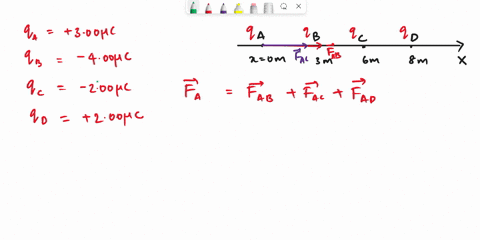 qA = +3.00μC
qB = -4.00μC
qC = -2.00μC
qD = +2.00μC
qA qB qC qD
FAC FAB
x=0m 3m 6m 8m X
FA = FAB + FAC + FAD